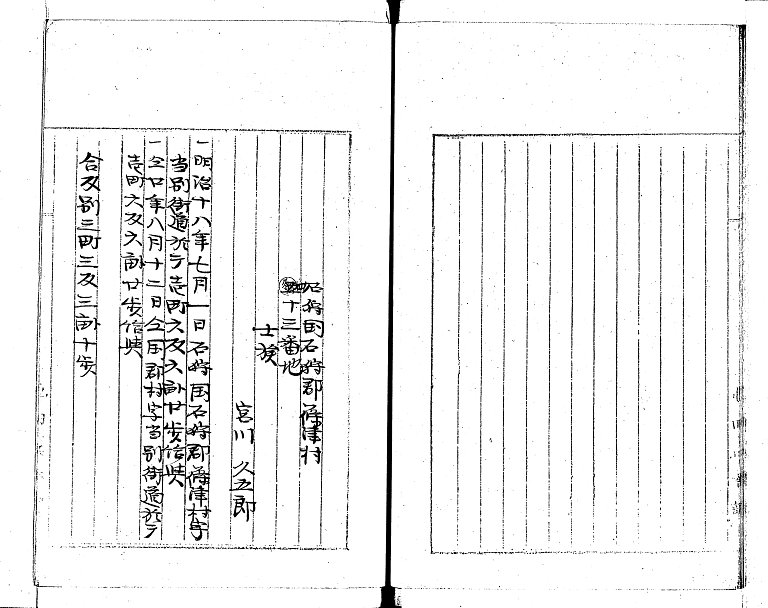 石狩国石狩郡篠津村
十三番地
士族
宮川 久五郎
一明治十八年七月一日石狩国石狩郡篠津村字
当別街道於テ壱町六反六畝廿歩借映
一仝廿年八月十二日仝国郡村字当別街道於テ
壱町六反六畝廿歩借映
合反別三町三反三畝十歩